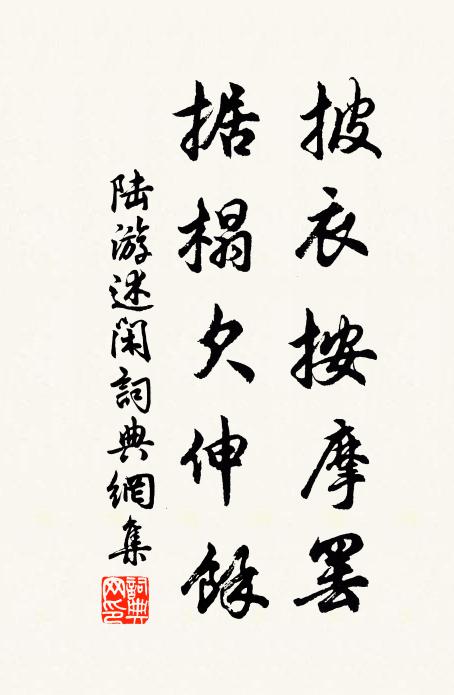 披衣按摩罢
据榻欠伸餘
陆游述闲詞典網集
詞典网印